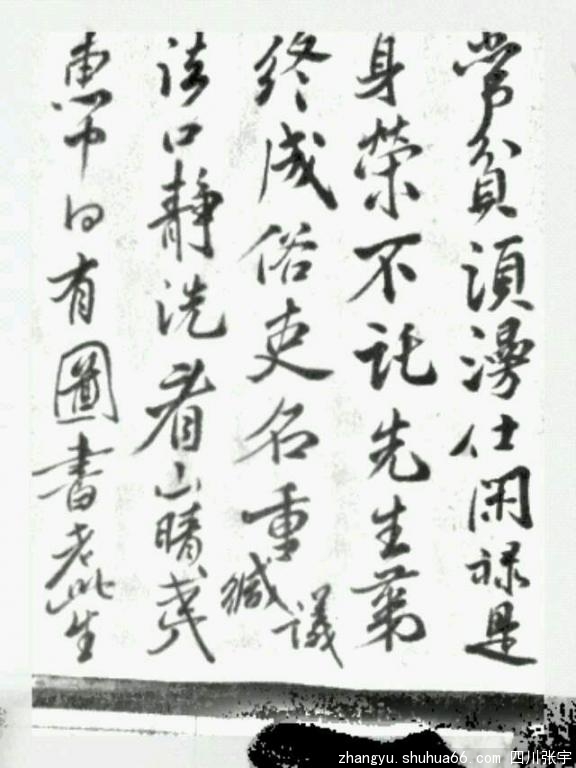 常貧須漫仕閑禄是
身榮不託先生第
終成俗吏名重緘議
法口靜洗看山晴夷
惠中有圖書老此生
zhangyu.shuhua66.com 四川张宇